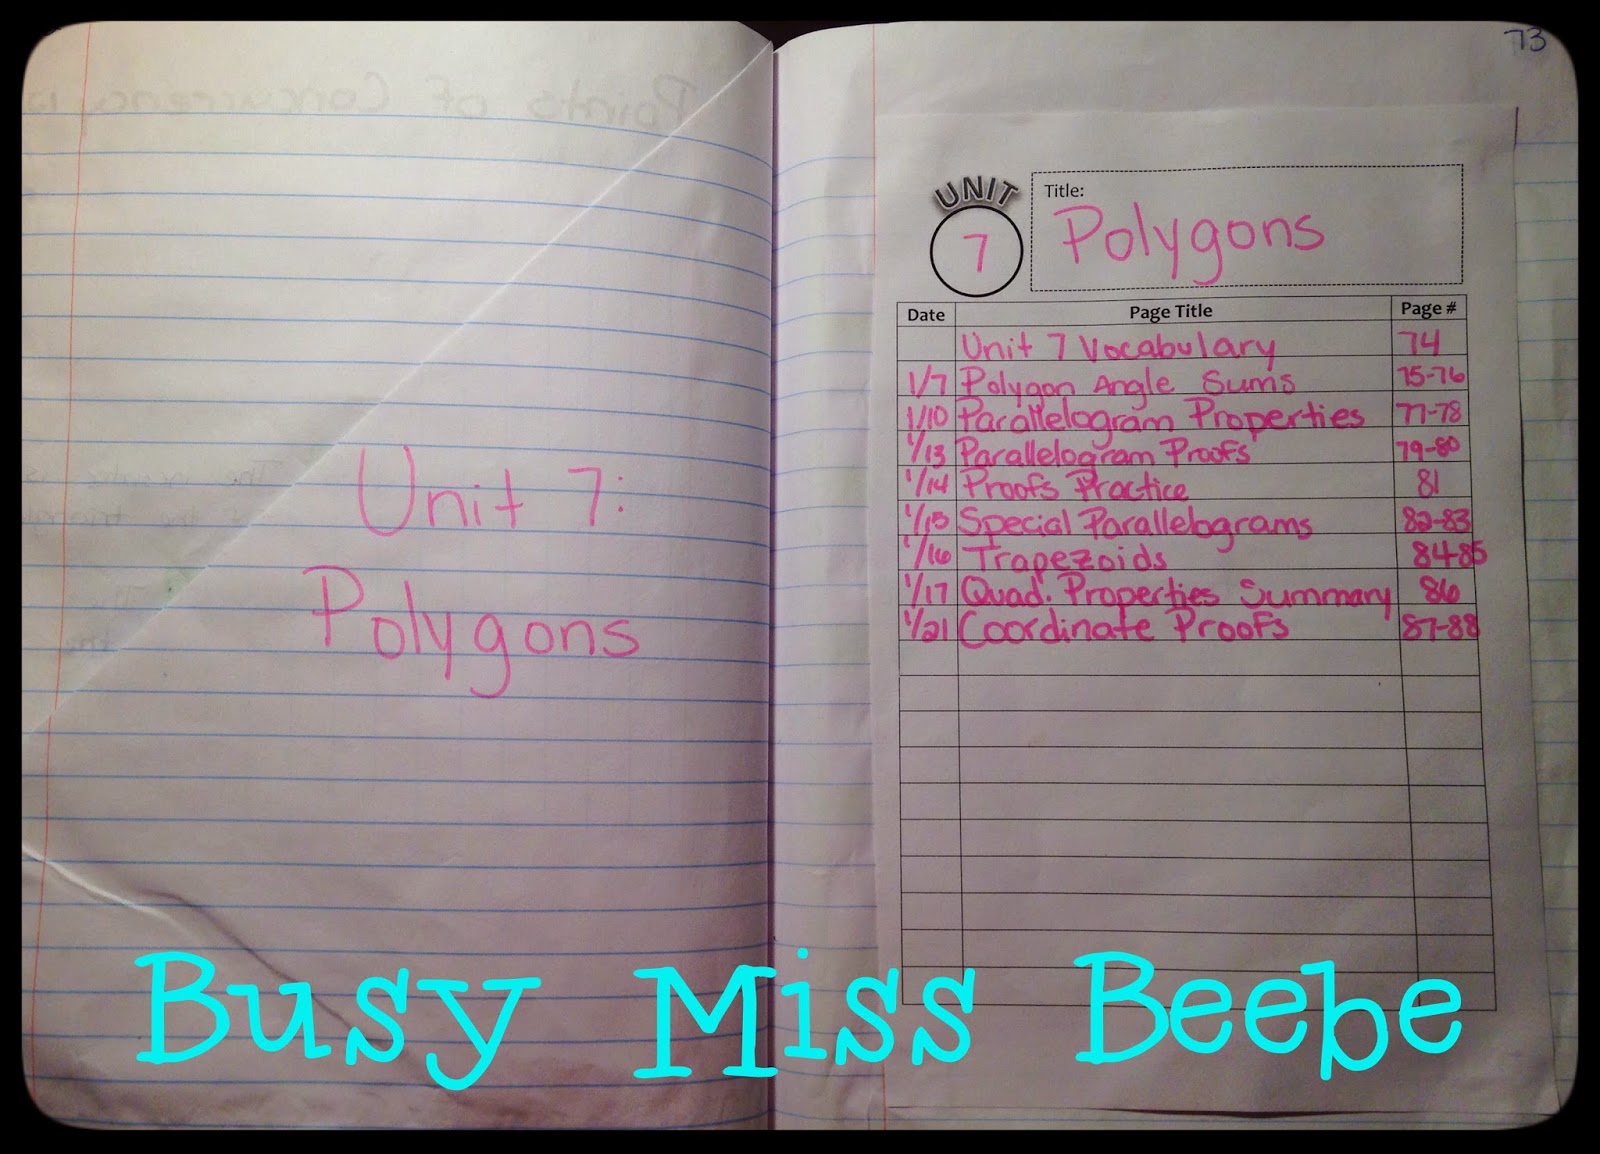 Unit 7:
Polygons
73
UNIT
7
Title:
Polygons
Date Page Title Page #
Unit 7 Vocabulary 74
1/7 Polygon Angle Sums 75-76
1/10 Parallelogram Properties 77-78
1/13 Parallelogram Proofs 79-80
1/14 Proofs Practice 81
1/15 Special Parallelograms 82-83
1/16 Trapezoids 84-85
1/17 Quad. Properties Summary 86
1/21 Coordinate Proofs 87-88
Busy Miss Beebe